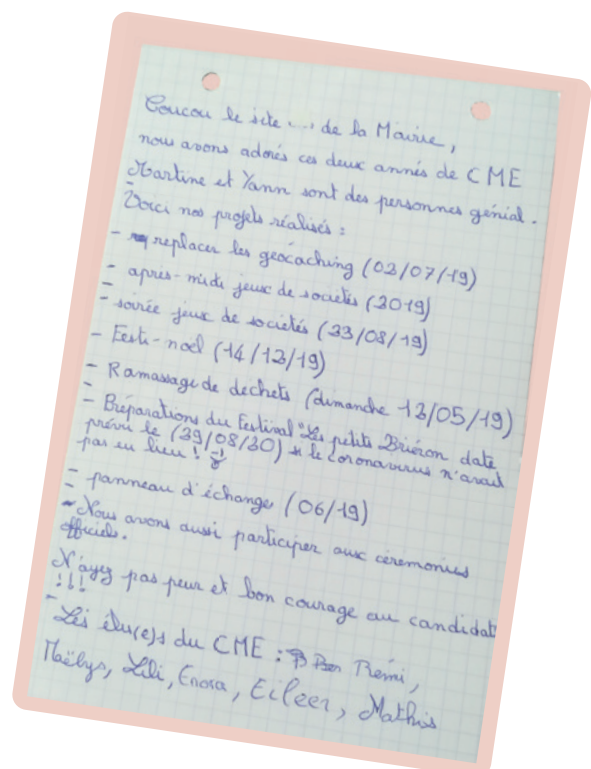 Coucou le site ... de la Mairie,
nous avons adorés ces deux annés de CME
Martine et Yann sont des personnes génial.
Voici nos projets réalisés :
- replacer les géocaching (02/07/19)
- après-midi jeux de sociétés (2019)
- soirée jeux de sociétés (23/08/19)
- Festi-noël (14/12/19)
- Ramassage de déchets (dimanche 12/05/19)
- Préparations du Festival "Les petits Briéron date
prévu le (29/08/20) si le coronavirus n'avait
pas eu lieu !
- panneau d'échange (06/19)
- Nous avons aussi participer aux cérémonies
officiels.
N'ayez pas peur et bon courage au candidat
!!!
Les élu(e)s du CME : Rémi,
Maëlys, Lili, Enora, Eileen, Mathis